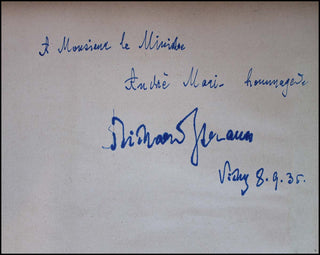 A Monsieur le Ministre
Andrè Mari- hommage de
Richard Strauss
Vichy 8.9.35.